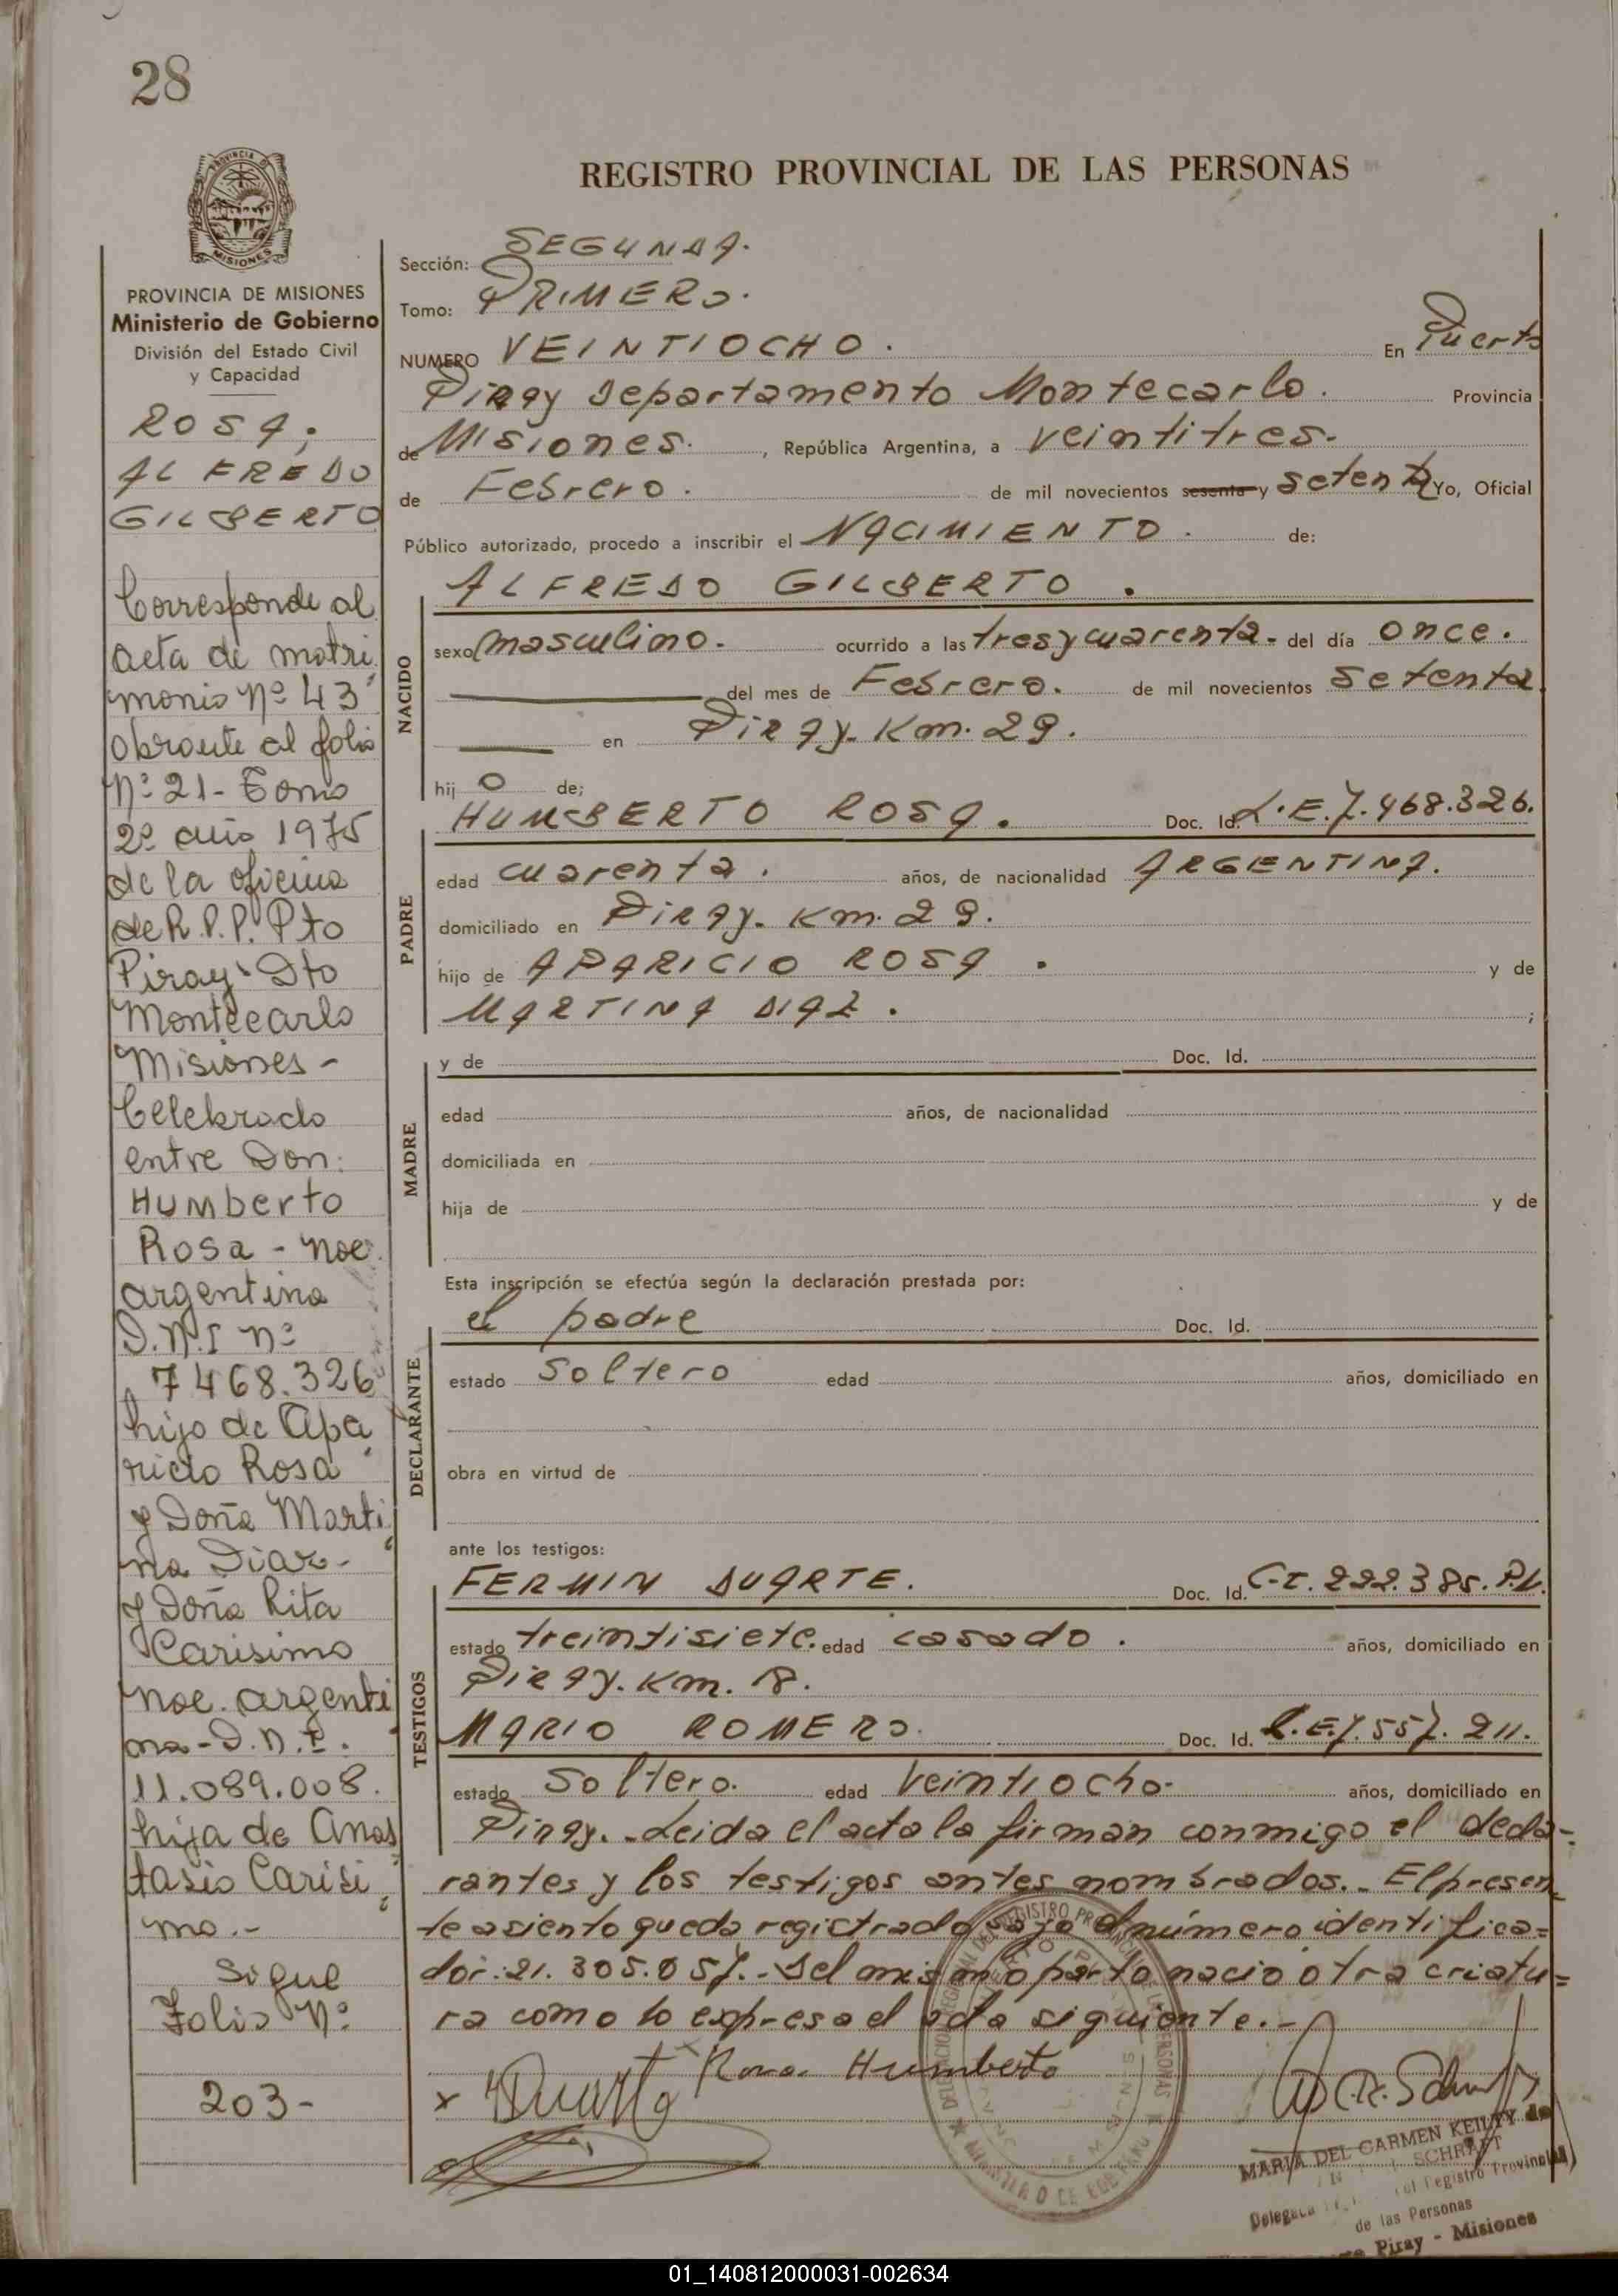 28
REGISTRO PROVINCIAL DE LAS PERSONAS
PROVINCIA DE MISIONES
Ministerio de Gobierno
División del Estado Civil
y Capacidad
ROSA,
ALFREDO
GILBERTO
Corresponde al
acta de matri
monio Nº 43
obrante al folio
Nº 21 - Tomo
2º año 1975
de la oficina
de R.P.P. Pto
Piray Dto
Montecarlo
Misiones -
Celebrado
entre Don:
Humberto
Rosa - nac.
argentina
D.N.I nº
7468.326
hijo de Apa
ricio Rosa
y Doña Marti
na Diaz -
y Doña Rita
Carisimo
nac. argenti
na - D.N.I.
11.089.008.
hija de Anas
tasio Carisi
mo.-
Sigue
Folio Nº
203-
Sección: SEGUNDA.
Tomo: PRIMERO.
NUMERO VEINTIOCHO. En Puerto
Piray Departamento Montecarlo. Provincia
de Misiones. , República Argentina, a veintitres.
de Febrero. de mil novecientos sesenta y setenta Yo, Oficial
Público autorizado, procedo a inscribir el NACIMIENTO. de:
ALFREDO GILBERTO.
NACIDO
sexo masculino. ocurrido a las tres y cuarenta- del día once.
del mes de Febrero. de mil novecientos setenta
en Piray. Km. 29.
hij o de;
HUMBERTO ROSA. Doc. Id. L.E.7.468.326.
PADRE
edad cuarenta. años, de nacionalidad ARGENTINA.
domiciliado en Piray. Km. 29.
hijo de APARICIO ROSA. y de
MARTINA DIAZ. ;
y de Doc. Id.
MADRE
edad años, de nacionalidad
domiciliada en
hija de y de
Esta inscripción se efectúa según la declaración prestada por:
el padre Doc. Id.
DECLARANTE
estado soltero edad años, domiciliado en
obra en virtud de
ante los testigos:
FERMIN DUARTE. Doc. Id. C.I. 222.385.
TESTIGOS
estado treintisiete. edad casado. años, domiciliado en
Piray. Km. 18.
MARIO ROMERO. Doc. Id. L.E.7.557.211.
estado soltero. edad veintiocho. años, domiciliado en
Piray.- Leida el acta la firman conmigo el decla-
rantes y los testigos antes nombrados.- El presen
te asiento queda registrado bajo el número identifica=
dor: 21.305.057.- Del mismo parto nacio otra criatu=
ra como lo expresa el acta siguiente.-
Rosa Humberto
x Duarte
MARIA DEL CARMEN KEILTY de
SCHRAFT
del Registro Provincial
de las Personas
Piray - Misiones
01_140812000031-002634